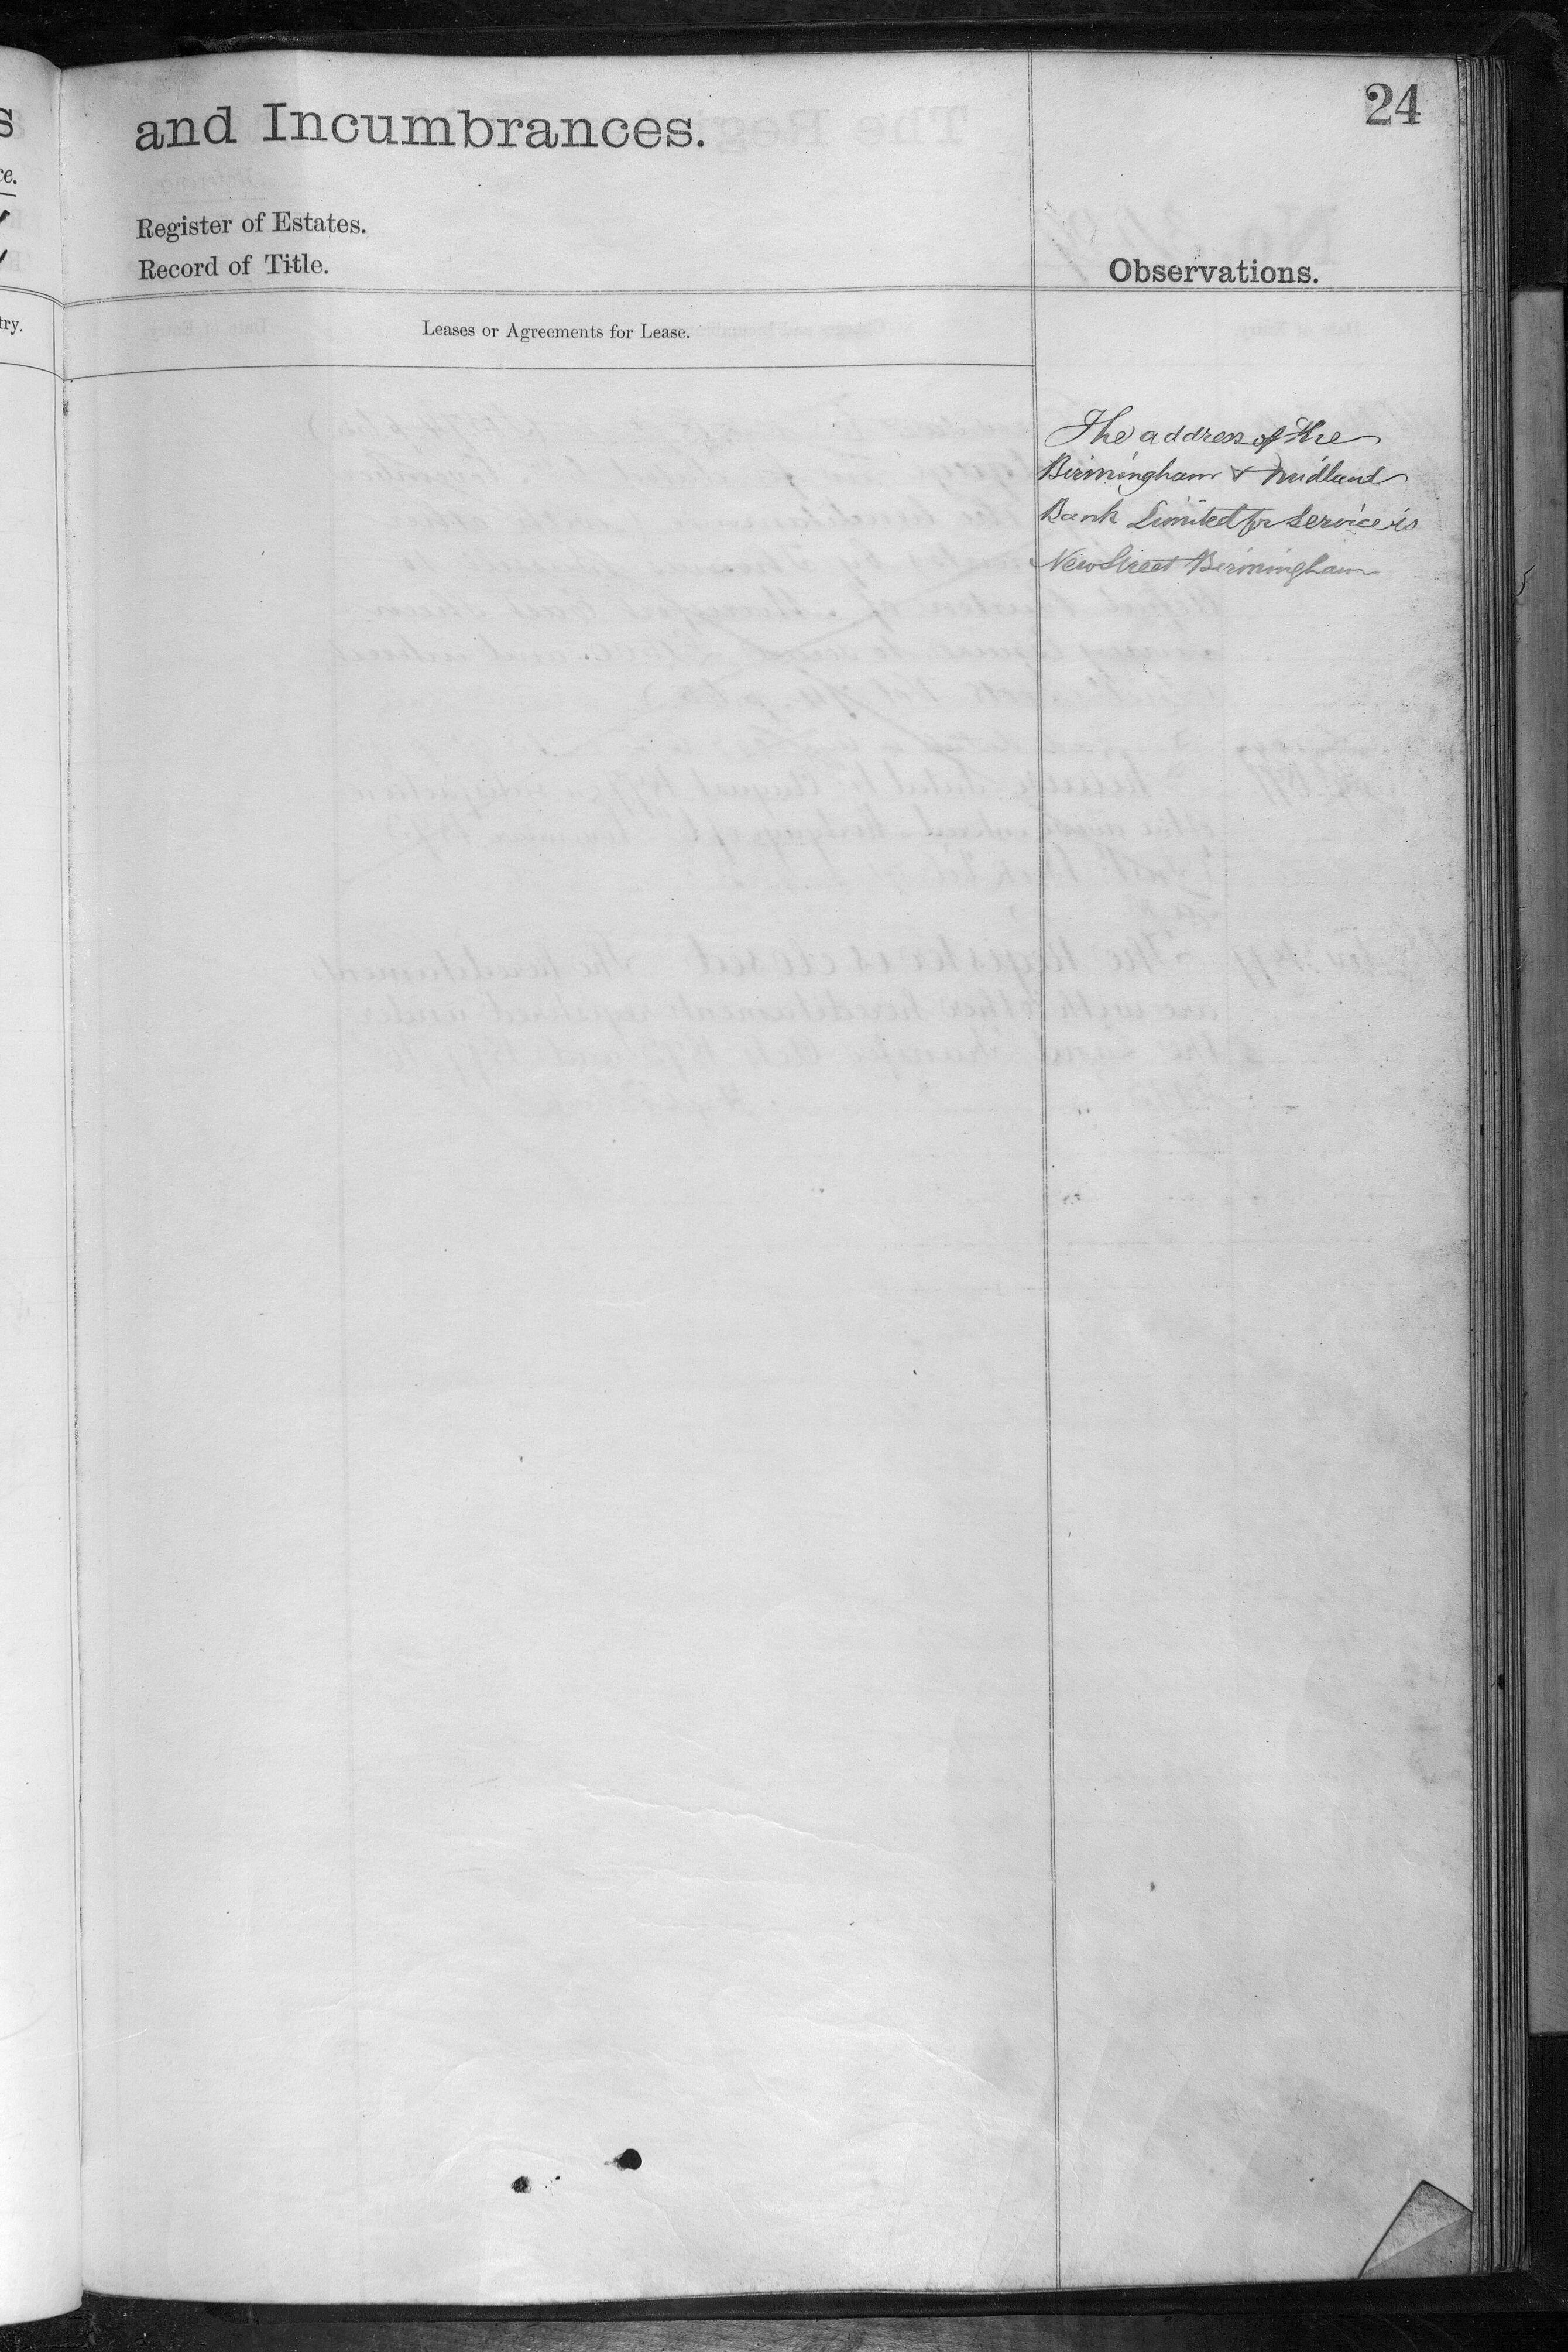 24
and Incumbrances.
Register of Estates.
Record of Title.
Observations.
Leases or Agreements for Lease.
The address of the
Birmingham & Midland
Bank Limited for Service is
New Street Birmingham